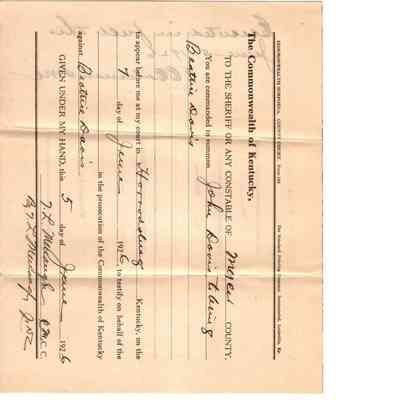 COMMONWEALTH SUBPOENA, COUNTY COURT.
The Commonwealth of Kentucky,
TO THE SHERIFF OR ANY CONSTABLE OF Mercer COUNTY:
You are commanded to summon John Davis
Beatrice Davis
to appear before me at my court in Harrodsburg Kentucky, on the
7 day of June 1926 to testify on behalf of the
in the prosecution of the Commonwealth of Kentucky
against Beatrice Davis
GIVEN UNDER MY HAND, this 5 day of June 1926
C. C.
By